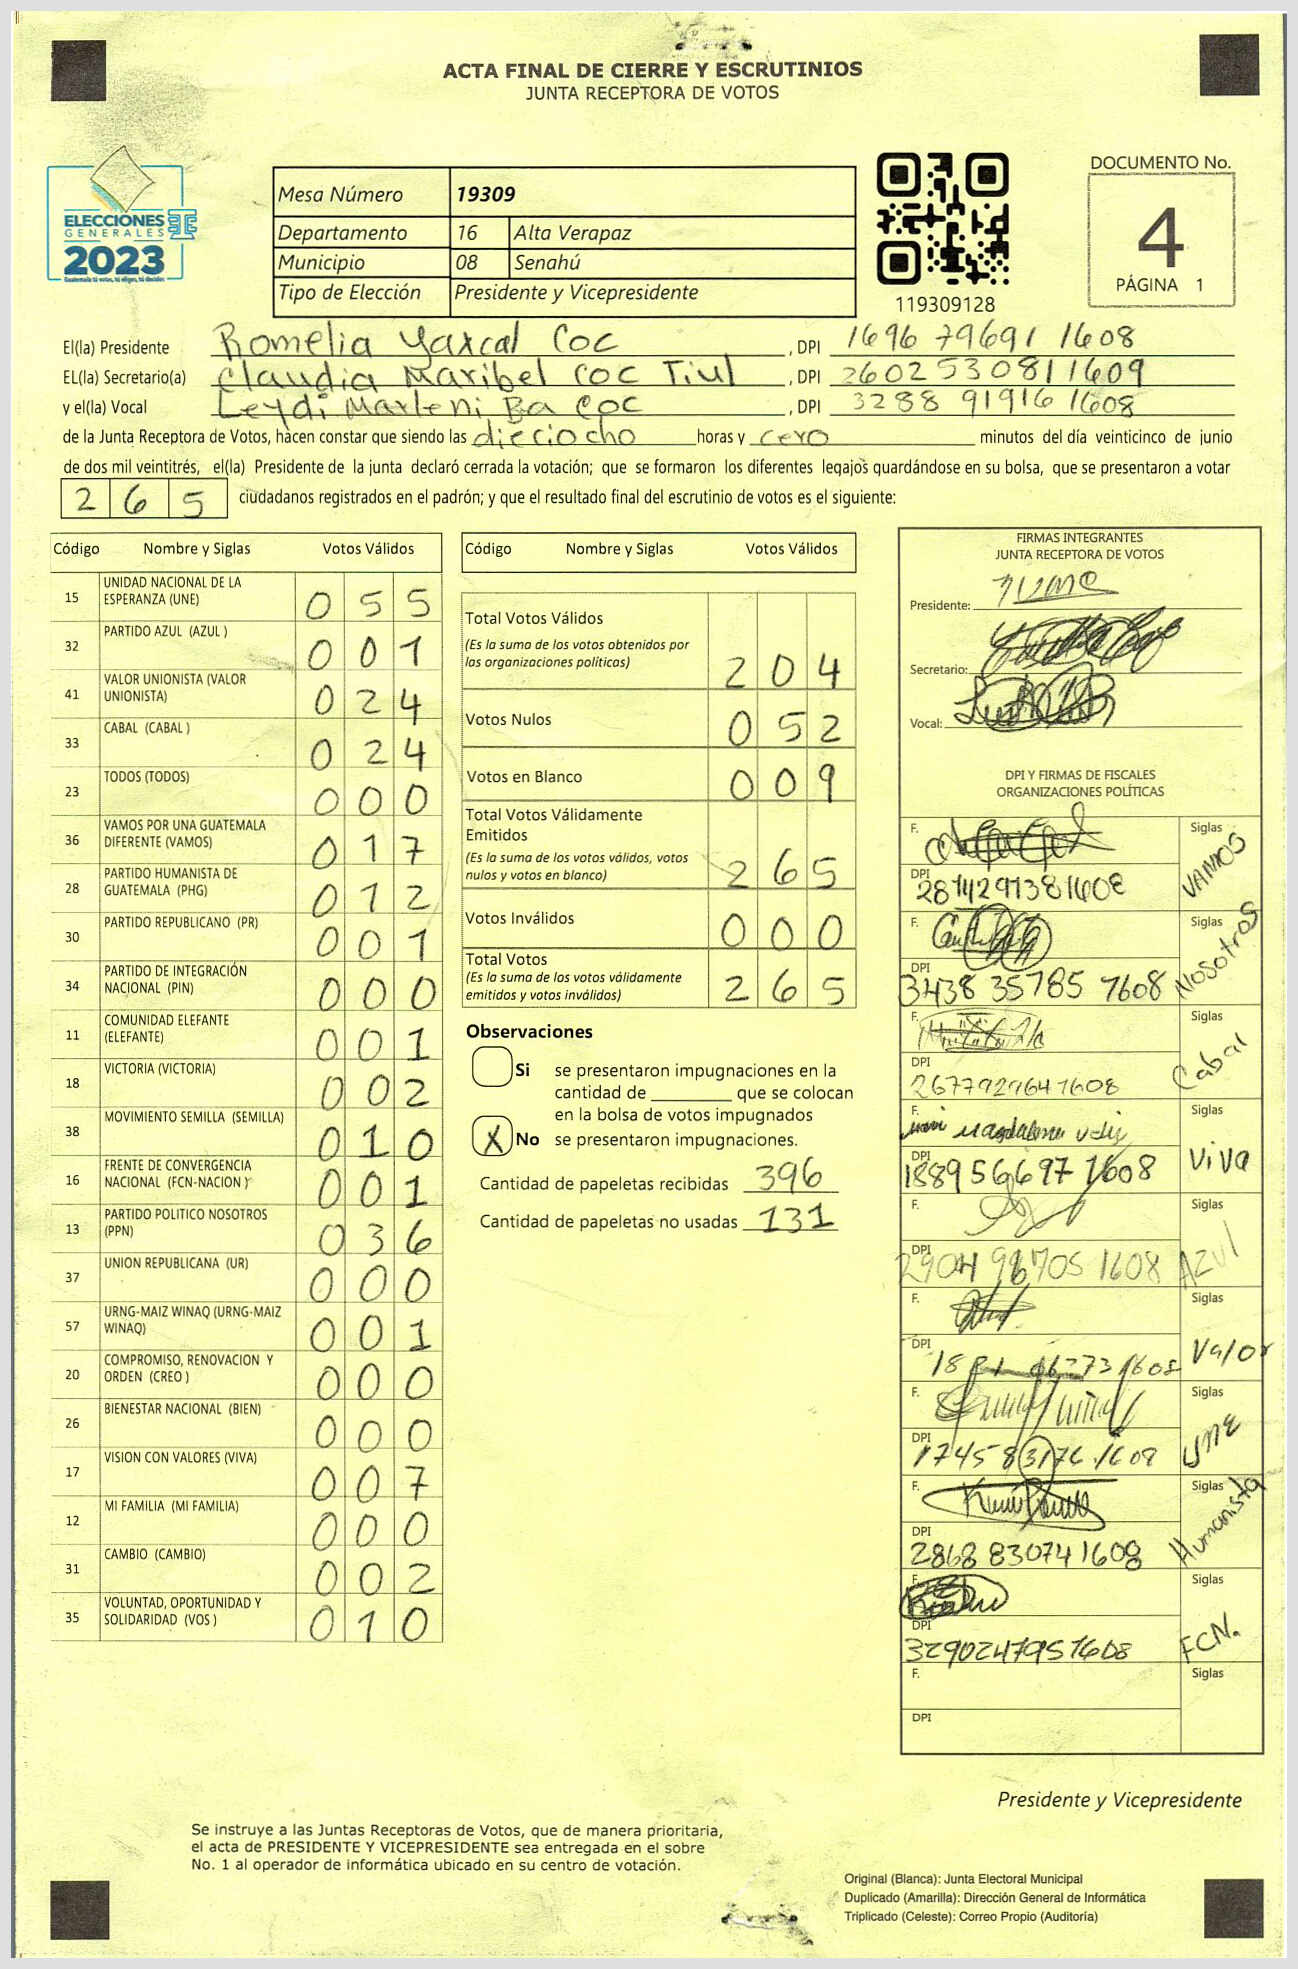 ACTA FINAL DE CIERRE Y ESCRUTINIOS
JUNTA RECEPTORA DE VOTOS
ELECCIONES
GENERALES
2023
Mesa Número 19309
Departamento 16 Alta Verapaz
Municipio 08 Senahú
Tipo de Elección Presidente y Vicepresidente
119309128
DOCUMENTO No.
4
PÁGINA 1
El(la) Presidente Romelia Yaxcal Coc , DPI 1696 79691 1608
EL(la) Secretario(a) Claudia Maribel Coc Tiul , DPI 2602530811609
y el(la) Vocal Leydi Marleni Ba Coc , DPI 3288 91916 1608
de la Junta Receptora de Votos, hacen constar que siendo las dieciocho horas y cero minutos del día veinticinco de junio
de dos mil veintitrés, el(la) Presidente de la junta declaró cerrada la votación; que se formaron los diferentes legajos guardándose en su bolsa, que se presentaron a votar
265 ciudadanos registrados en el padrón; y que el resultado final del escrutinio de votos es el siguiente:
Código Nombre y Siglas Votos Válidos
15 UNIDAD NACIONAL DE LA ESPERANZA (UNE) 055
32 PARTIDO AZUL (AZUL ) 001
41 VALOR UNIONISTA (VALOR UNIONISTA) 024
33 CABAL (CABAL ) 024
23 TODOS (TODOS) 000
36 VAMOS POR UNA GUATEMALA DIFERENTE (VAMOS) 017
28 PARTIDO HUMANISTA DE GUATEMALA (PHG) 012
30 PARTIDO REPUBLICANO (PR) 001
34 PARTIDO DE INTEGRACIÓN NACIONAL (PIN) 000
11 COMUNIDAD ELEFANTE (ELEFANTE) 001
18 VICTORIA (VICTORIA) 002
38 MOVIMIENTO SEMILLA (SEMILLA) 010
16 FRENTE DE CONVERGENCIA NACIONAL (FCN-NACION ) 001
13 PARTIDO POLITICO NOSOTROS (PPN) 036
37 UNION REPUBLICANA (UR) 000
57 URNG-MAIZ WINAQ (URNG-MAIZ WINAQ) 001
20 COMPROMISO, RENOVACION Y ORDEN (CREO ) 000
26 BIENESTAR NACIONAL (BIEN) 000
17 VISION CON VALORES (VIVA) 007
12 MI FAMILIA (MI FAMILIA) 000
31 CAMBIO (CAMBIO) 002
35 VOLUNTAD, OPORTUNIDAD Y SOLIDARIDAD (VOS ) 010
Código Nombre y Siglas Votos Válidos
Total Votos Válidos 204
(Es la suma de los votos obtenidos por las organizaciones políticas)
Votos Nulos 052
Votos en Blanco 009
Total Votos Válidamente Emitidos 265
(Es la suma de los votos válidos, votos nulos y votos en blanco)
Votos Inválidos 000
Total Votos 265
(Es la suma de los votos válidamente emitidos y votos inválidos)
Observaciones
Si se presentaron impugnaciones en la
cantidad de ________ que se colocan
en la bolsa de votos impugnados
X No se presentaron impugnaciones.
Cantidad de papeletas recibidas 396
Cantidad de papeletas no usadas 131
FIRMAS INTEGRANTES
JUNTA RECEPTORA DE VOTOS
Presidente:
Secretario:
Vocal:
DPI Y FIRMAS DE FISCALES
ORGANIZACIONES POLÍTICAS
F. Siglas VAMOS
DPI
F. Siglas Nosotros
DPI 3438 35785 1608
F. Siglas Cabal
DPI 2677929641608
F. Magdalena Siglas Viva
DPI 1889566971608
F. Siglas AZUL
DPI 2904 96705 1608
F. Siglas Valor
DPI
F. Siglas UNE
DPI
F. Siglas Humanista
DPI 2868 830741608
F. Siglas FCN.
DPI 3290247951608
F. Siglas
DPI
Presidente y Vicepresidente
Se instruye a las Juntas Receptoras de Votos, que de manera prioritaria,
el acta de PRESIDENTE Y VICEPRESIDENTE sea entregada en el sobre
No. 1 al operador de informática ubicado en su centro de votación.
Original (Blanca): Junta Electoral Municipal
Duplicado (Amarilla): Dirección General de Informática
Triplicado (Celeste): Correo Propio (Auditoría)